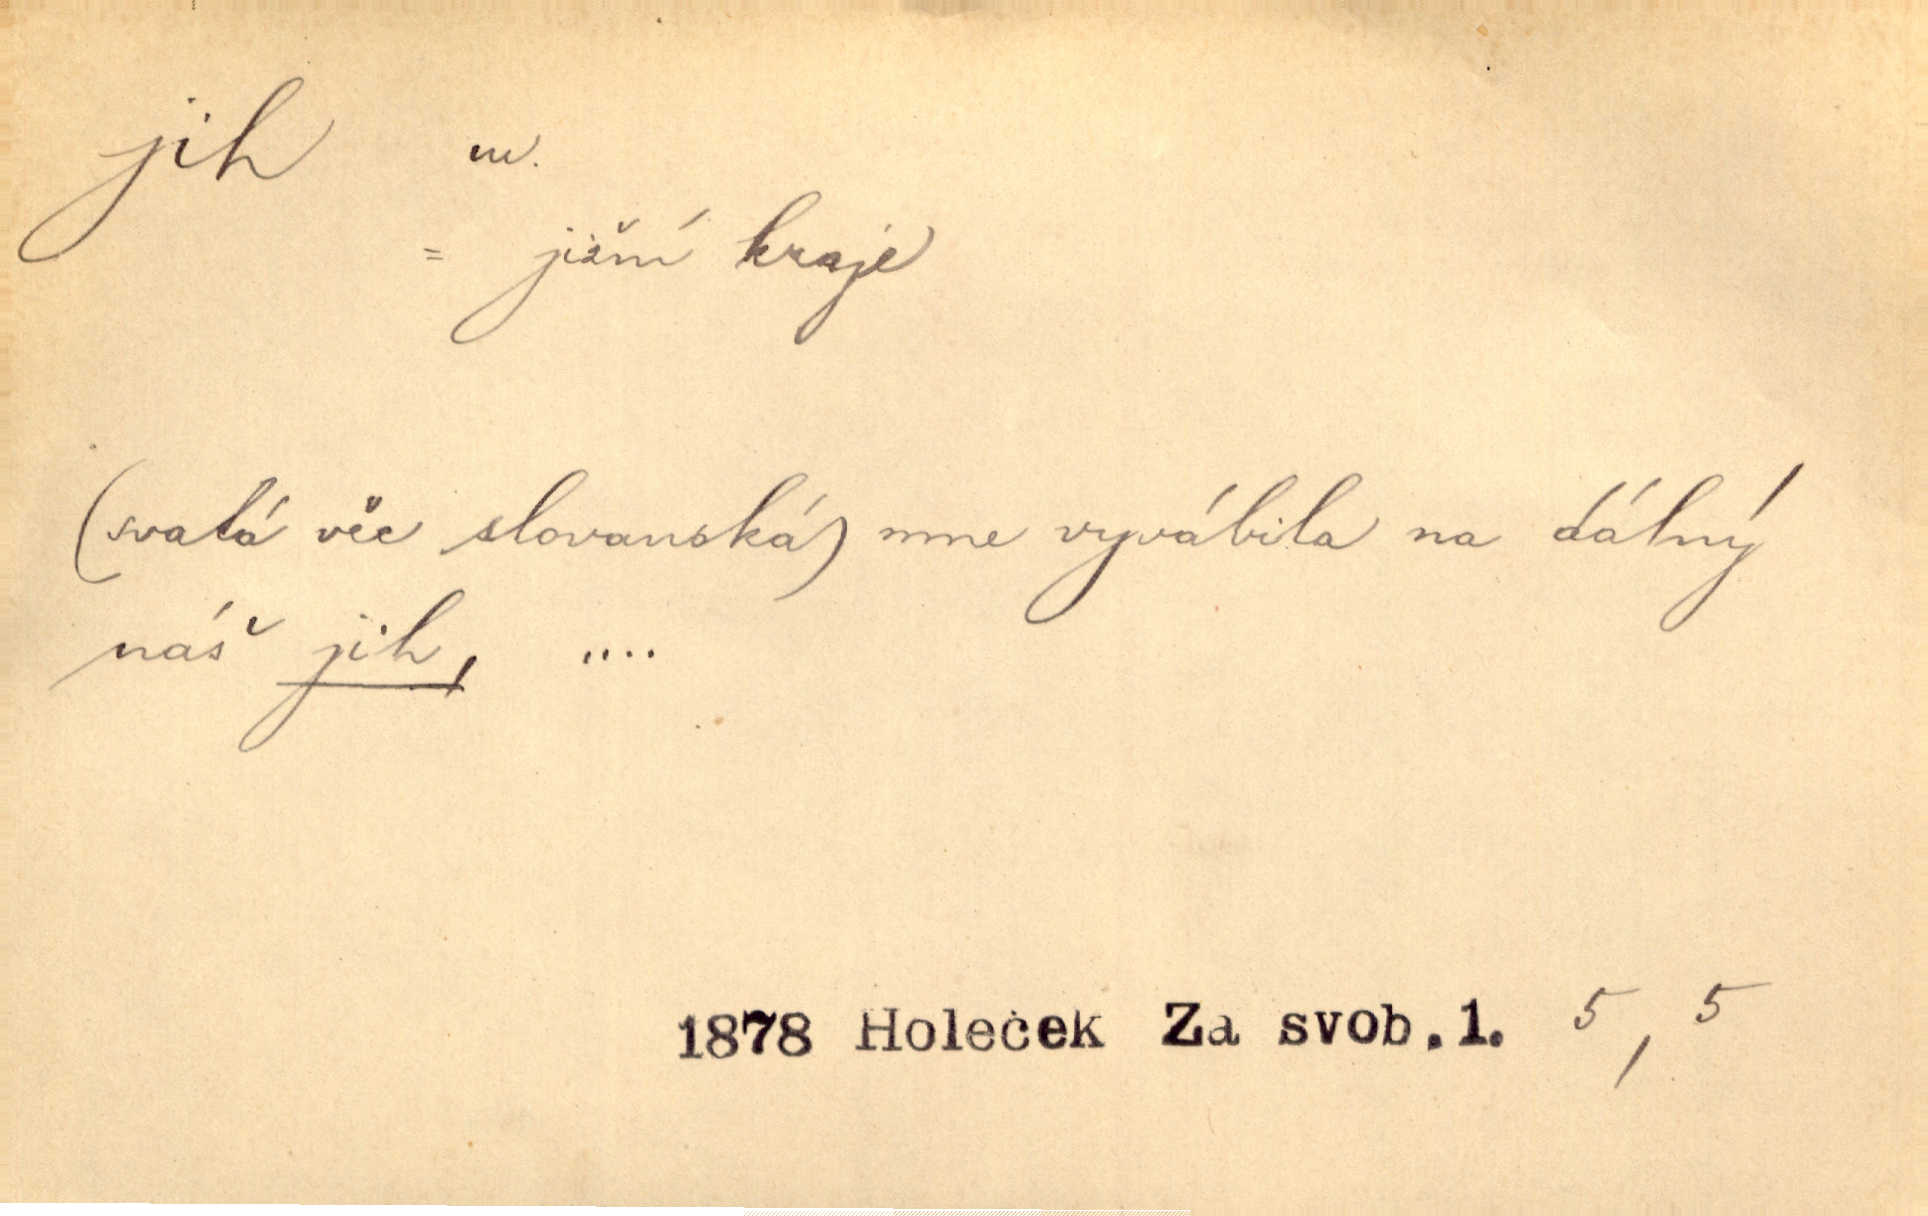 jih m.
= jižní kraje
(svatá věc slovanská) mne vyvábila na dálný
náš jih, ....
1878 Holeček Za svob.1. 5,5